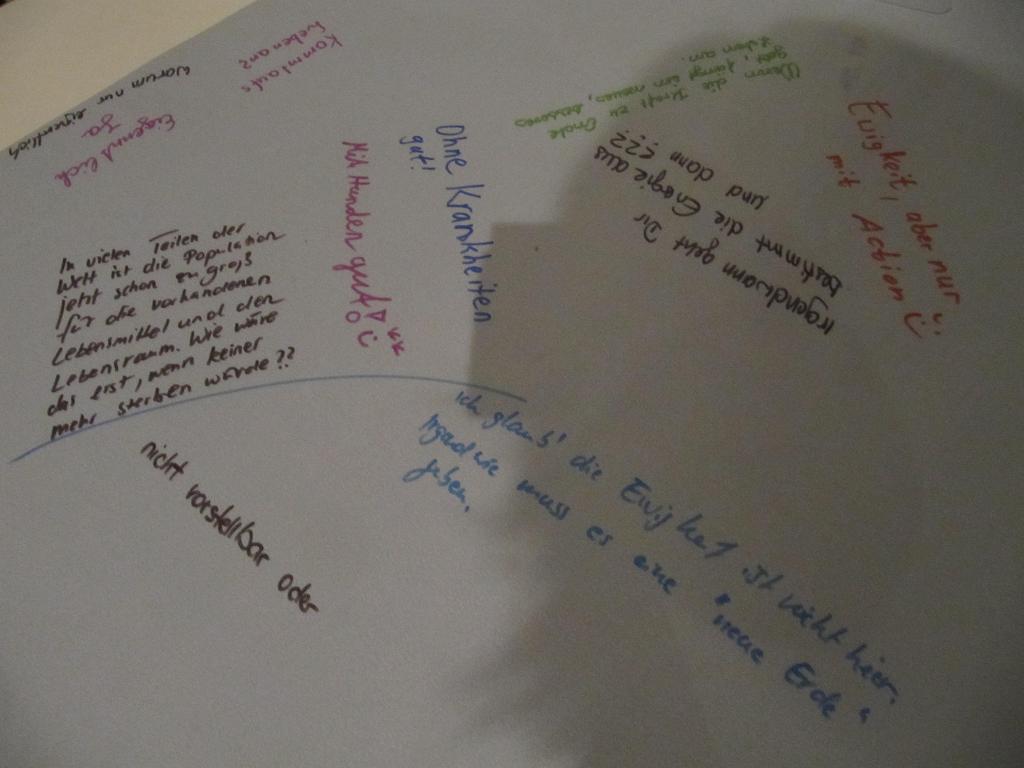 Kommt auf's
Leben an?
Warum nur eigentlich
Eigendlich
Ja
In vielen Teilen der
Welt ist die Population
jetzt schon zu groß
für die vorhandenen
Lebensmittel und den
Lebensraum. Wie wäre
das erst, wenn keiner
mehr sterben würde??
nicht vorstellbar oder
Mit Hunden gut!
Ohne Krankheiten
gut!
Wenn die Kraft zu Ende
geht, fängt ein neues, besseres
Leben an.
Irgendwann geht Dir
bestimmt die Energie aus
und dann ???
Ewigkeit, aber nur
mit Action
ich glaub' die Ewigkeit ist nicht hier.
Irgendwie muss es eine "neue Erde"
geben.